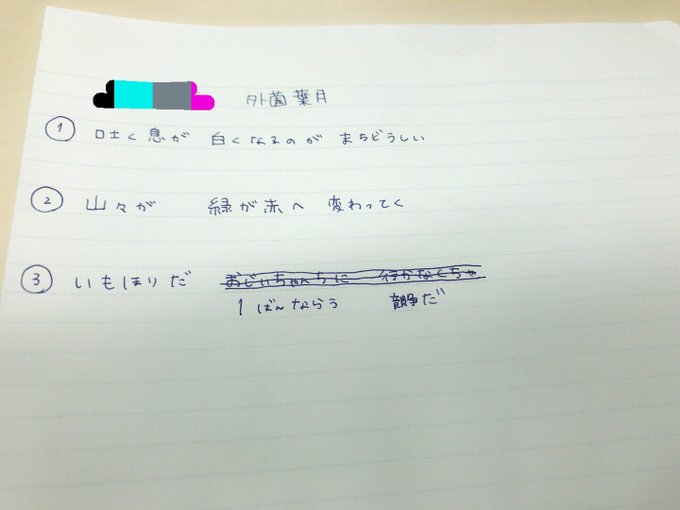 外薗葉月
① 吐く息が 白くなるのが まちどうしい
② 山々が 緑が赤へ 変わってく
③ いもほりだ おじいちゃんちに 行かなくちゃ
1ばんならう 競争だ